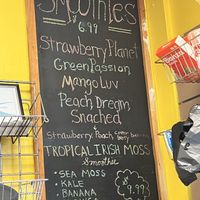 SMOOTHIES
6.99
Strawberry Planet
Green Passion
Mango Luv
Peach Dream
Snached
Strawberry Peach
TROPICAL IRISH MOSS
Smoothie
• SEA MOSS
• KALE
• BANANA
9.99